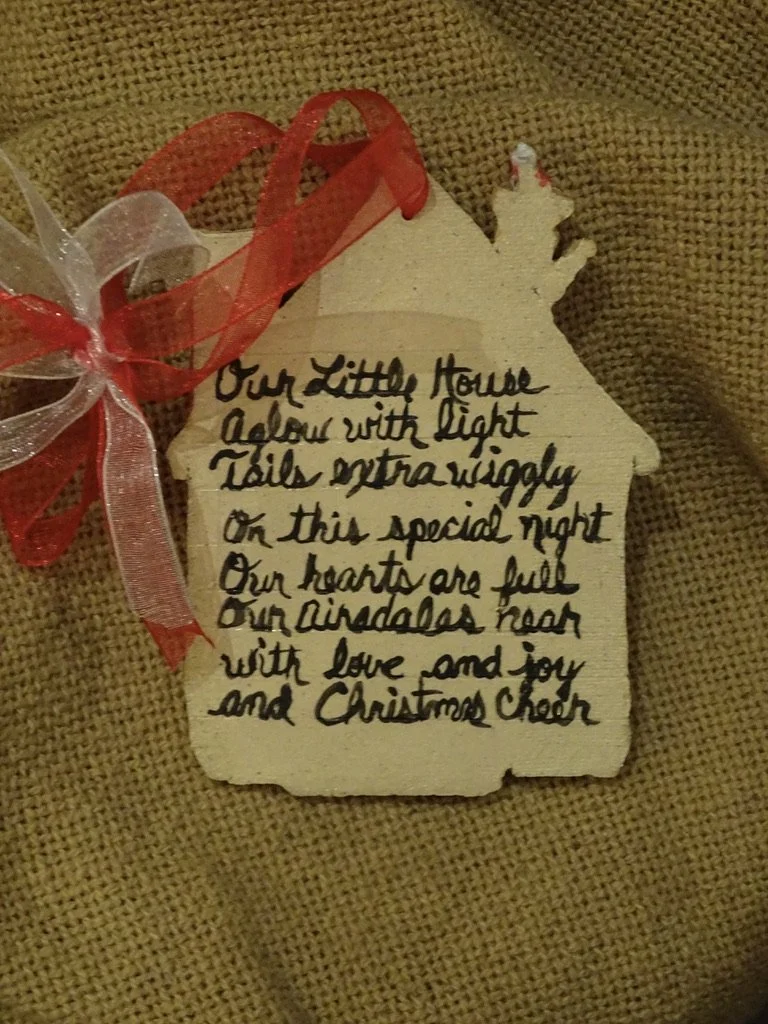 Our Little House
Aglow with light
Tails extra wiggly
On this special night
Our hearts are full
Our Airedales near
with love and joy
and Christmas Cheer